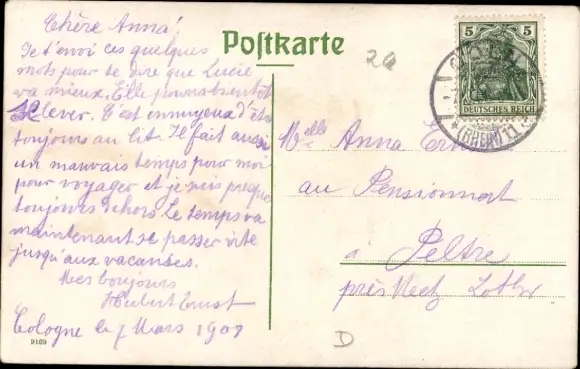 Chère Anna!
Je t'envoi ces quelques
mots pour te dire que Lucie
va mieux. Elle pourra bientôt
se lever. C'est ennuyeux d'être
toujours au lit. Il fait aussi
un mauvais temps pour moi
pour voyager et je suis presque
toujours dehors. Le temps va
maintenant se passer vite
jusqu'aux vacances.
Mes bonjours
Hubert Ernst
Cologne le 7 Mars 1907
9169
Postkarte
20
5 5
DEUTSCHES REICH
(RHEIN) 11
Melle Anna
au Pensionnat
à Peltre
près Metz Lothr
D